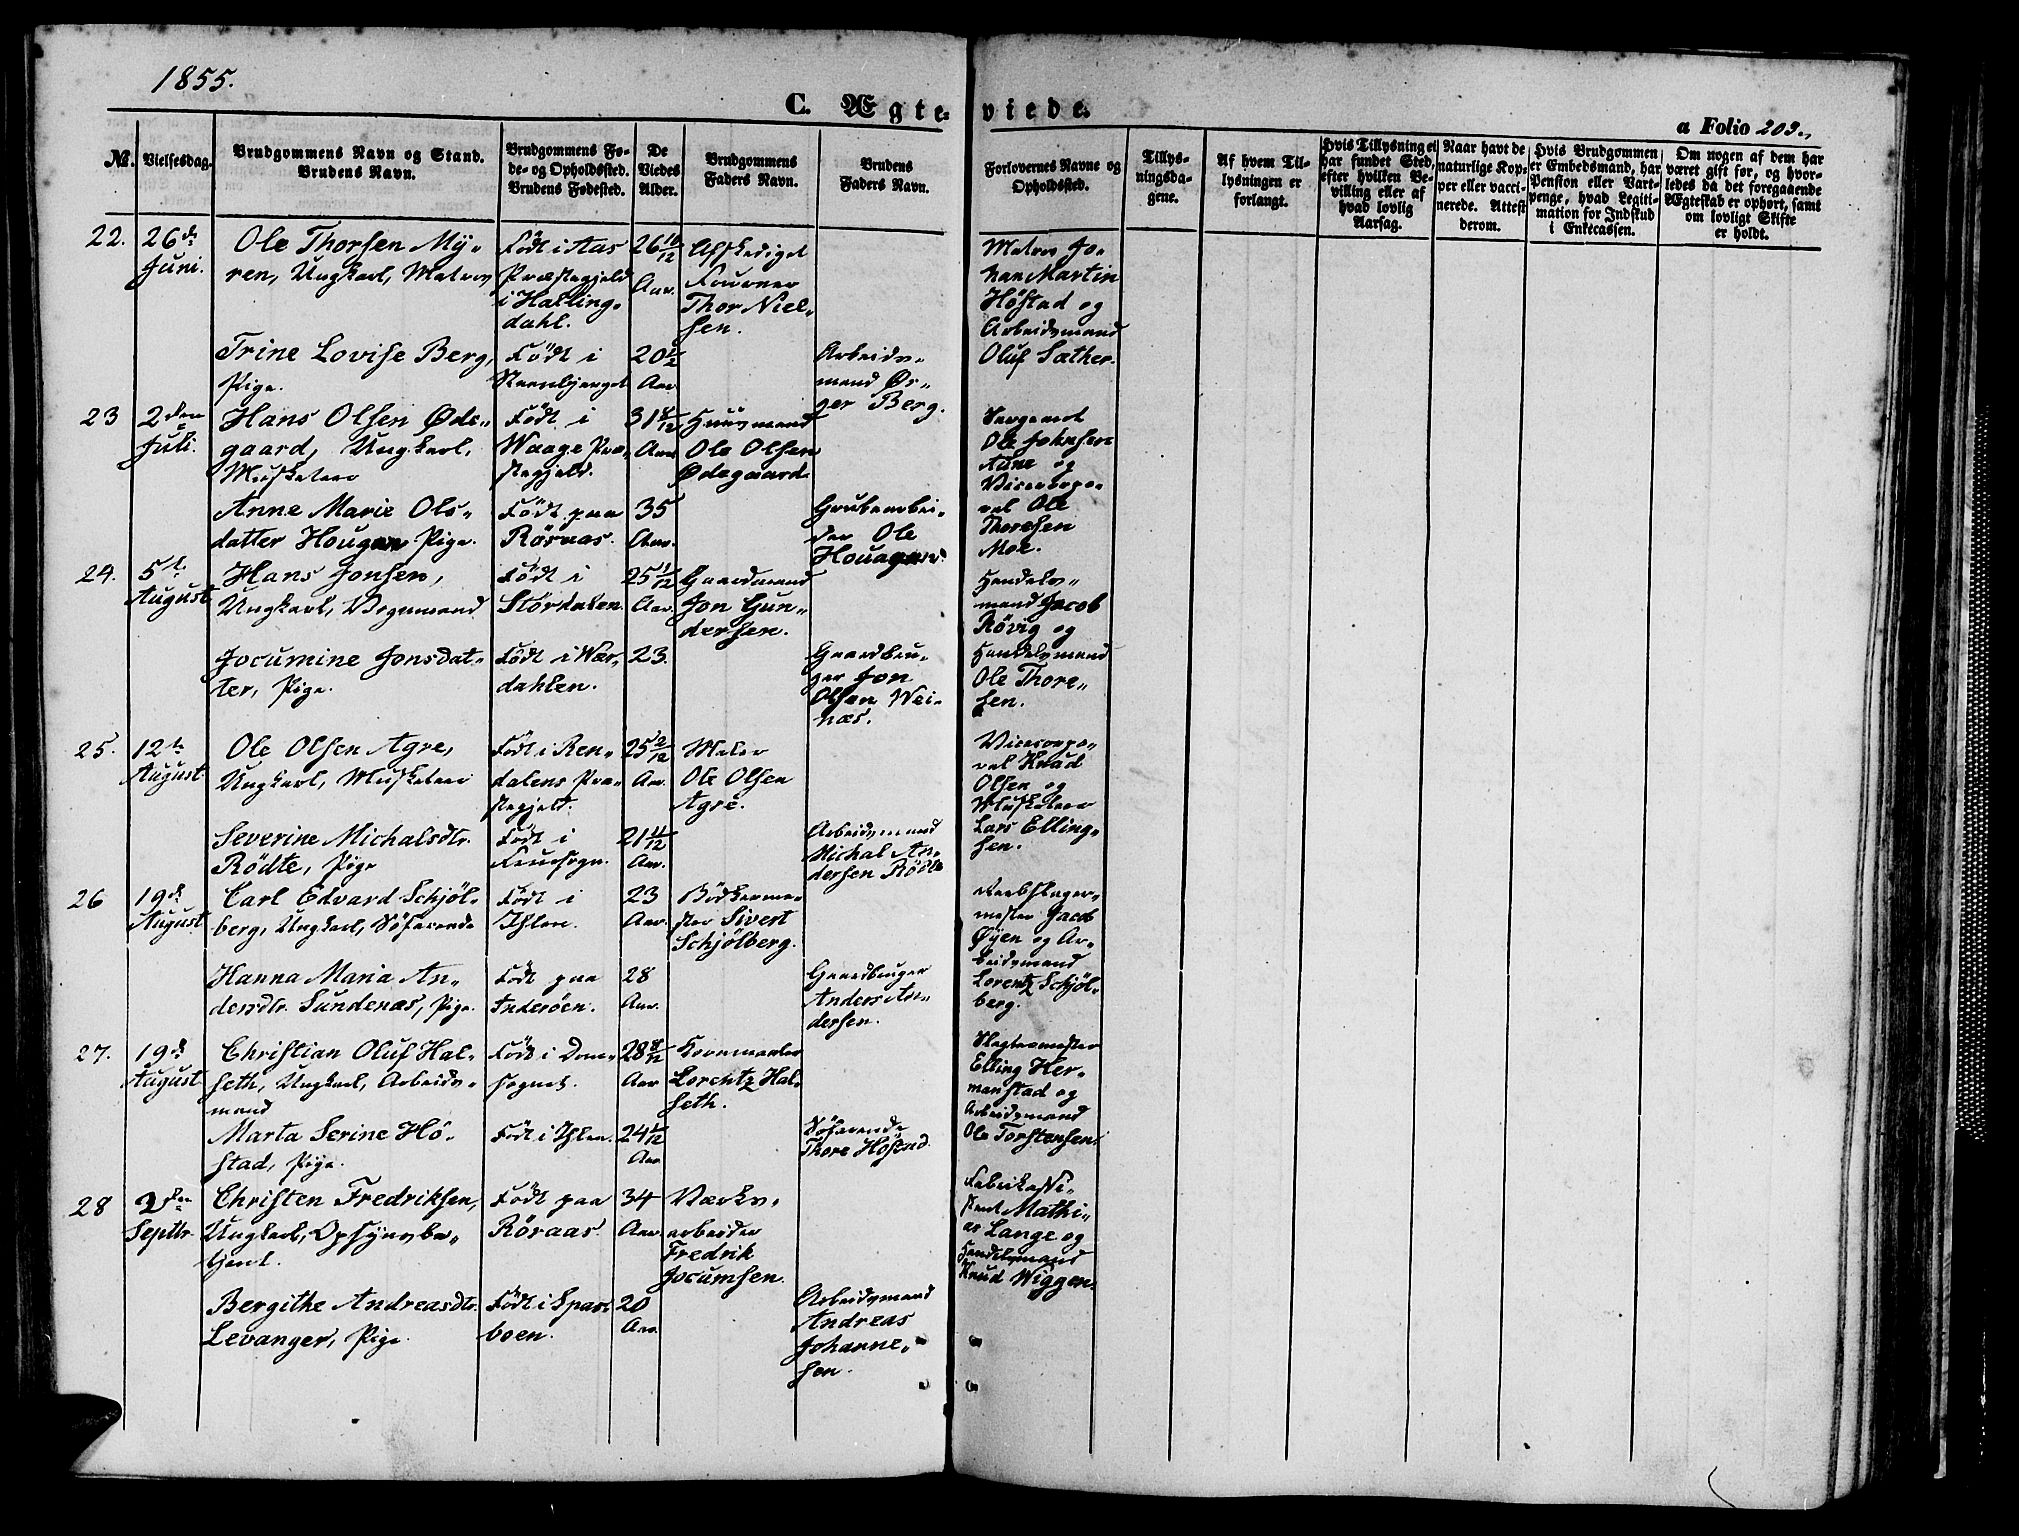 1855.
C. Ægte-
viede.
a Folio 203.
№.
Vielsesdag.
Brudgommens Navn og Stand.
Brudens Navn.
Brudgommens Fø-
de- og Opholdssted.
Brudens Fødested.
De
Viedes
Alder.
Brudgommens
Faders Navn.
Brudens
Faders Navn.
Forlovernes Navne og
Opholdssted.
Tillys-
ningsda-
gene.
Af hvem Til-
lysningen er
forlangt.
Hvis Tillysning ei
har fundet Sted,
efter hvilken Be-
villing eller af
hvad lovlig
Aarsag.
Naar havt de
naturlige Kop-
per eller vacci-
nerede. Attest
derom.
Hvis Brudgommen
er Embedsmand, har
Pension eller Vart-
penge, hvad Legiti-
mation for Indskud
i Enkecassen.
Om nogen af dem har
været gift før, og hvor-
ledes da det foregaaende
Ægteskab er ophørt, samt
om lovligt Skifte
er holdt.
22.
26de
Juni.
Ole Thorsen My-
ren, Ungkarl, Matros
Født i Aas
Præstegjeld
i Halling-
dahl.
26 10/12
Aar.
Afskediget
Foureer
Thor Niel-
sen.
Matros Jo-
han Martin
Höstad og
Arbeidsmand
Oluf Sæther.
Trine Lovise Berg,
Pige.
Født i
20
Aar
Arbeids-
mand
Berg.
23
2den
Juli.
Hans Olsen Øde-
gaard, Ungkarl,
Musketeer
Født i
Waage Præ-
stegjeld.
31 8/12
Aar
Huusmand
Ole Olsen
Ødegaard.
Sergeant
Ole Johnsen
Aune og
Vicecorpo-
ral Ole
Thoresen
Moe.
Anne Marie Ols-
datter Hougen Pige.
Født paa
Röraas.
35
Aar.
Grubearbei-
der Ole
Hougen
24.
5te
August
Hans Jonsen,
Ungkarl, Vognmand
Født i
Stördalen.
25 11/12
Aar.
Gaardmand
Jon Gun-
dersen.
Handels-
mand Jacob
Rövig og
Handelsmand
Ole Thore-
sen.
Jocumine Jonsdat-
ter, Pige.
Født i Vær-
dahlen.
23.
Gaardbru-
ger Jon
Olsen Wei-
næs.
25.
12te
August
Ole Olsen Agre,
Ungkarl, Musketeer
Født i Ren-
dalens Præ-
stegjeld.
25 2/12
Aar.
Maler
Ole Olsen
Agre.
Vicecorpo-
ral Knud
Olsen og
Musketeer
Lars Elling-
sen.
Severine Michalsdtr.
Rödte, Pige
Født i
Fruesogn.
21 11/12
Aar.
Arbeidsmand
Michal An-
dersen Rödte
26
19de
August
Carl Edvard Schjöl-
berg, Ungkarl, Söfarende
Født i
Ihlen.
23
Aar.
Bödkerme-
ster Sivert
Schjölberg.
Reebslager-
mester Jacob
Øyen og Ar-
beidsmand
Lorentz Schjöl-
berg.
Hanna Maria An-
dersdtr. Sundenæs, Pige.
Født paa
Inderöen.
28
Aar.
Gaardbruger
Anders An-
dersen.
27.
19de
August
Christian Oluf Hal-
seth, Ungkarl, Arbeids-
mand
Født i Dom-
sognet.
28 8/12
Aar
Kornmaaler
Lorentz Hal-
seth.
Slagtermester
Elling Her-
manstad og
Arbeidsmand
Ole Torstensen.
Marta Serine Hö-
stad, Pige.
Født i Ihlen.
24
Aar
Söfarende
Thore Höstad.
28
2den
Septbr.
Christen Fredriksen,
Ungkarl, Opsynsbe-
tjent.
Født paa
Röraas.
34
Aar.
Værks-
arbeider
Fredrik
Jocumsen.
Fabrikassi-
stent Mathi-
as Lange og
Handelsmand
Knud Wiggen.
Bergithe Andreasdtr.
Levanger, Pige.
Født i Spar-
boen.
20
Aar.
Arbeidsmand
Andreas
Johanne-
sen.